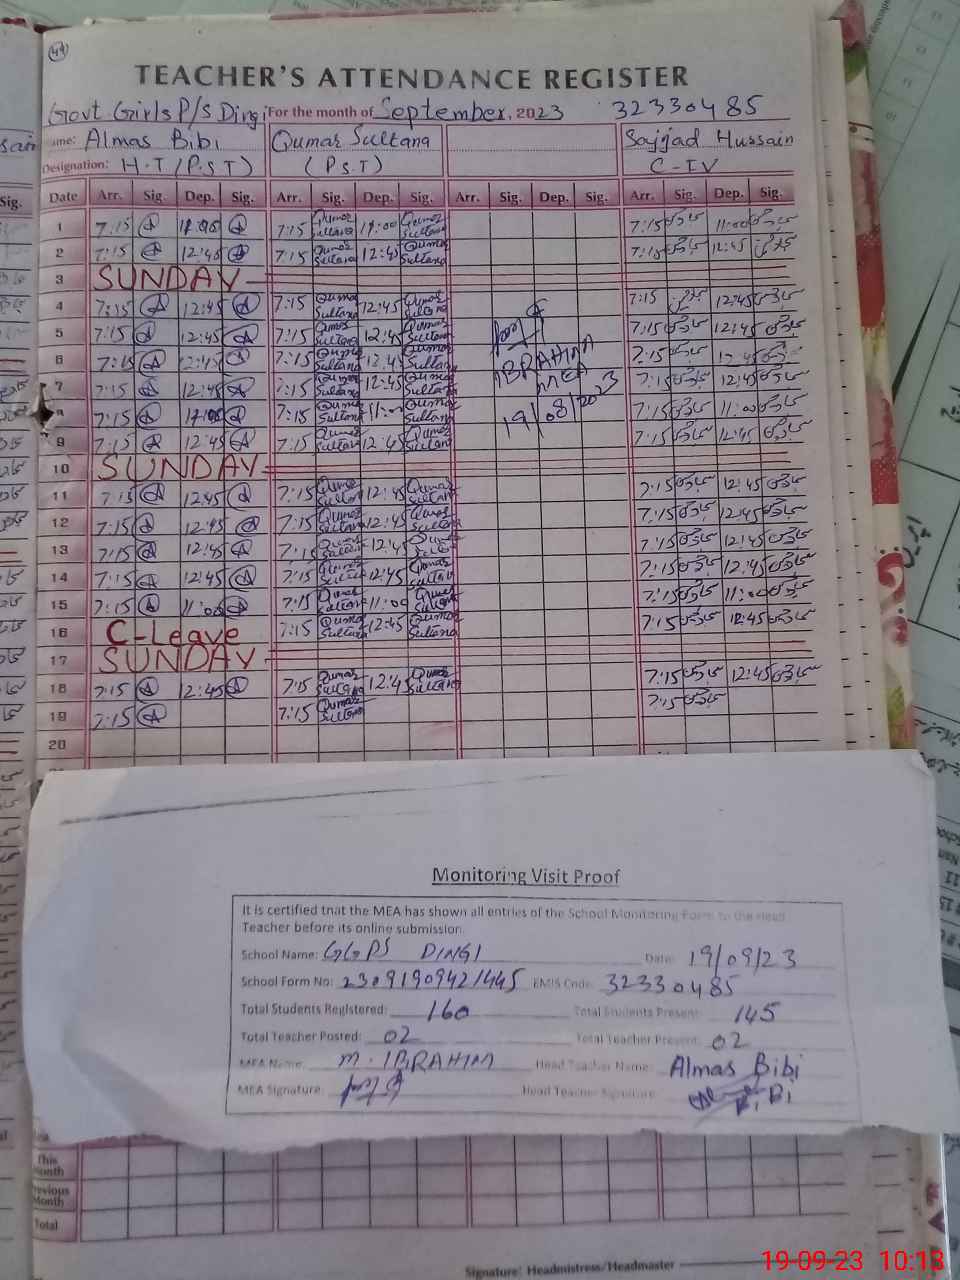 44
TEACHER'S ATTENDANCE REGISTER
Govt Girls P/S Dingi For the month of September, 2023 32330485
ame: Almas Bibi Qumar Sultana Sajjad Hussain
Designation: H.T (P.S.T) (P.S.T) C-IV
Sig. Date Arr. Sig. Dep. Sig. Arr. Sig. Dep. Sig. Arr. Sig. Dep. Sig. Arr. Sig. Dep. Sig.
1 7:15 A 11:00 A 7:15 Qumar Sultana 11:00 Qumar Sultana 7:15 11:00
2 7:15 A 12:45 A 7:15 Qumar Sultana 12:45 Qumar Sultana 7:15 12:45
3 SUNDAY
4 7:15 A 12:45 A 7:15 Qumar Sultana 12:45 Qumar Sultana 7:15 12:45
5 7:15 A 12:45 A 7:15 Qumar Sultana 12:45 Qumar Sultana 7:15 12:45
6 7:15 A 12:45 A 7:15 Qumar Sultana 12:45 Qumar Sultana 7:15 12:45
7 7:15 A 12:45 A 7:15 Qumar Sultana 12:45 Qumar Sultana 7:15 12:45
8 7:15 A 7:15 Qumar Sultana 11:00 Qumar Sultana 7:15 11:00
9 7:15 A 12:45 A 7:15 Qumar Sultana 12:45 Qumar Sultana 7:15 12:45
IBRAHIM
MEA
19/08/2023
10 SUNDAY
11 7:15 A 12:45 A 7:15 Qumar Sultana 12:45 Qumar Sultana 7:15 12:45
12 7:15 A 12:45 A 7:15 Qumar Sultana 12:45 Qumar Sultana 7:15 12:45
13 7:15 A 12:45 A 7:15 Qumar Sultana 12:45 Qumar Sultana 7:15 12:45
14 7:15 A 12:45 A 7:15 Qumar Sultana 12:45 Qumar Sultana 7:15 12:45
15 7:15 A 11:00 A 7:15 Qumar Sultana 11:00 Qumar Sultana 7:15 11:00
16 C-Leave 7:15 Qumar Sultana 12:45 Qumar Sultana 7:15 12:45
17 SUNDAY
18 7:15 A 12:45 A 7:15 Qumar Sultana 12:45 Qumar Sultana 7:15 12:45
19 7:15 A 7:15 Qumar Sultana 7:15
20
Monitoring Visit Proof
It is certified that the MEA has shown all entries of the School Monitoring Form to the Head
Teacher before its online submission.
School Name: GGPS DINGI Date: 19/09/23
School Form No: 23091909421445 EMIS Code: 32330485
Total Students Registered: 160 Total Students Present: 145
Total Teacher Posted: 02 Total Teacher Present: 02
MEA Name: M. IBRAHIM Head Teacher Name: Almas Bibi
MEA Signature: Head Teacher Signature: Almas Bibi
This Month
Previous Month
Total
Signature: Headmistress/Headmaster
19-09-23 10:13